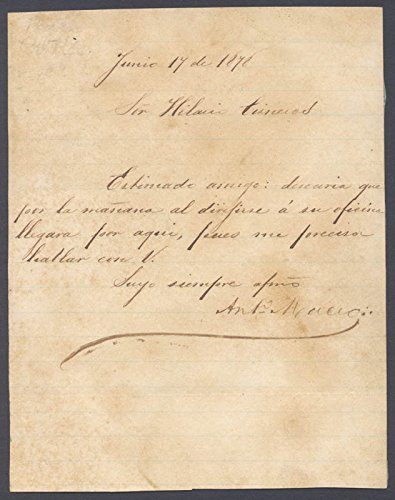 Junio 17 de 1878
Sor Hilario Cisneros
Estimado amigo: desearia que
por la mañana al dirijirse á su oficina
llegara por aqui, pues me precisa
hablar con V.
Suyo siempre afmo
Anto. Maceo